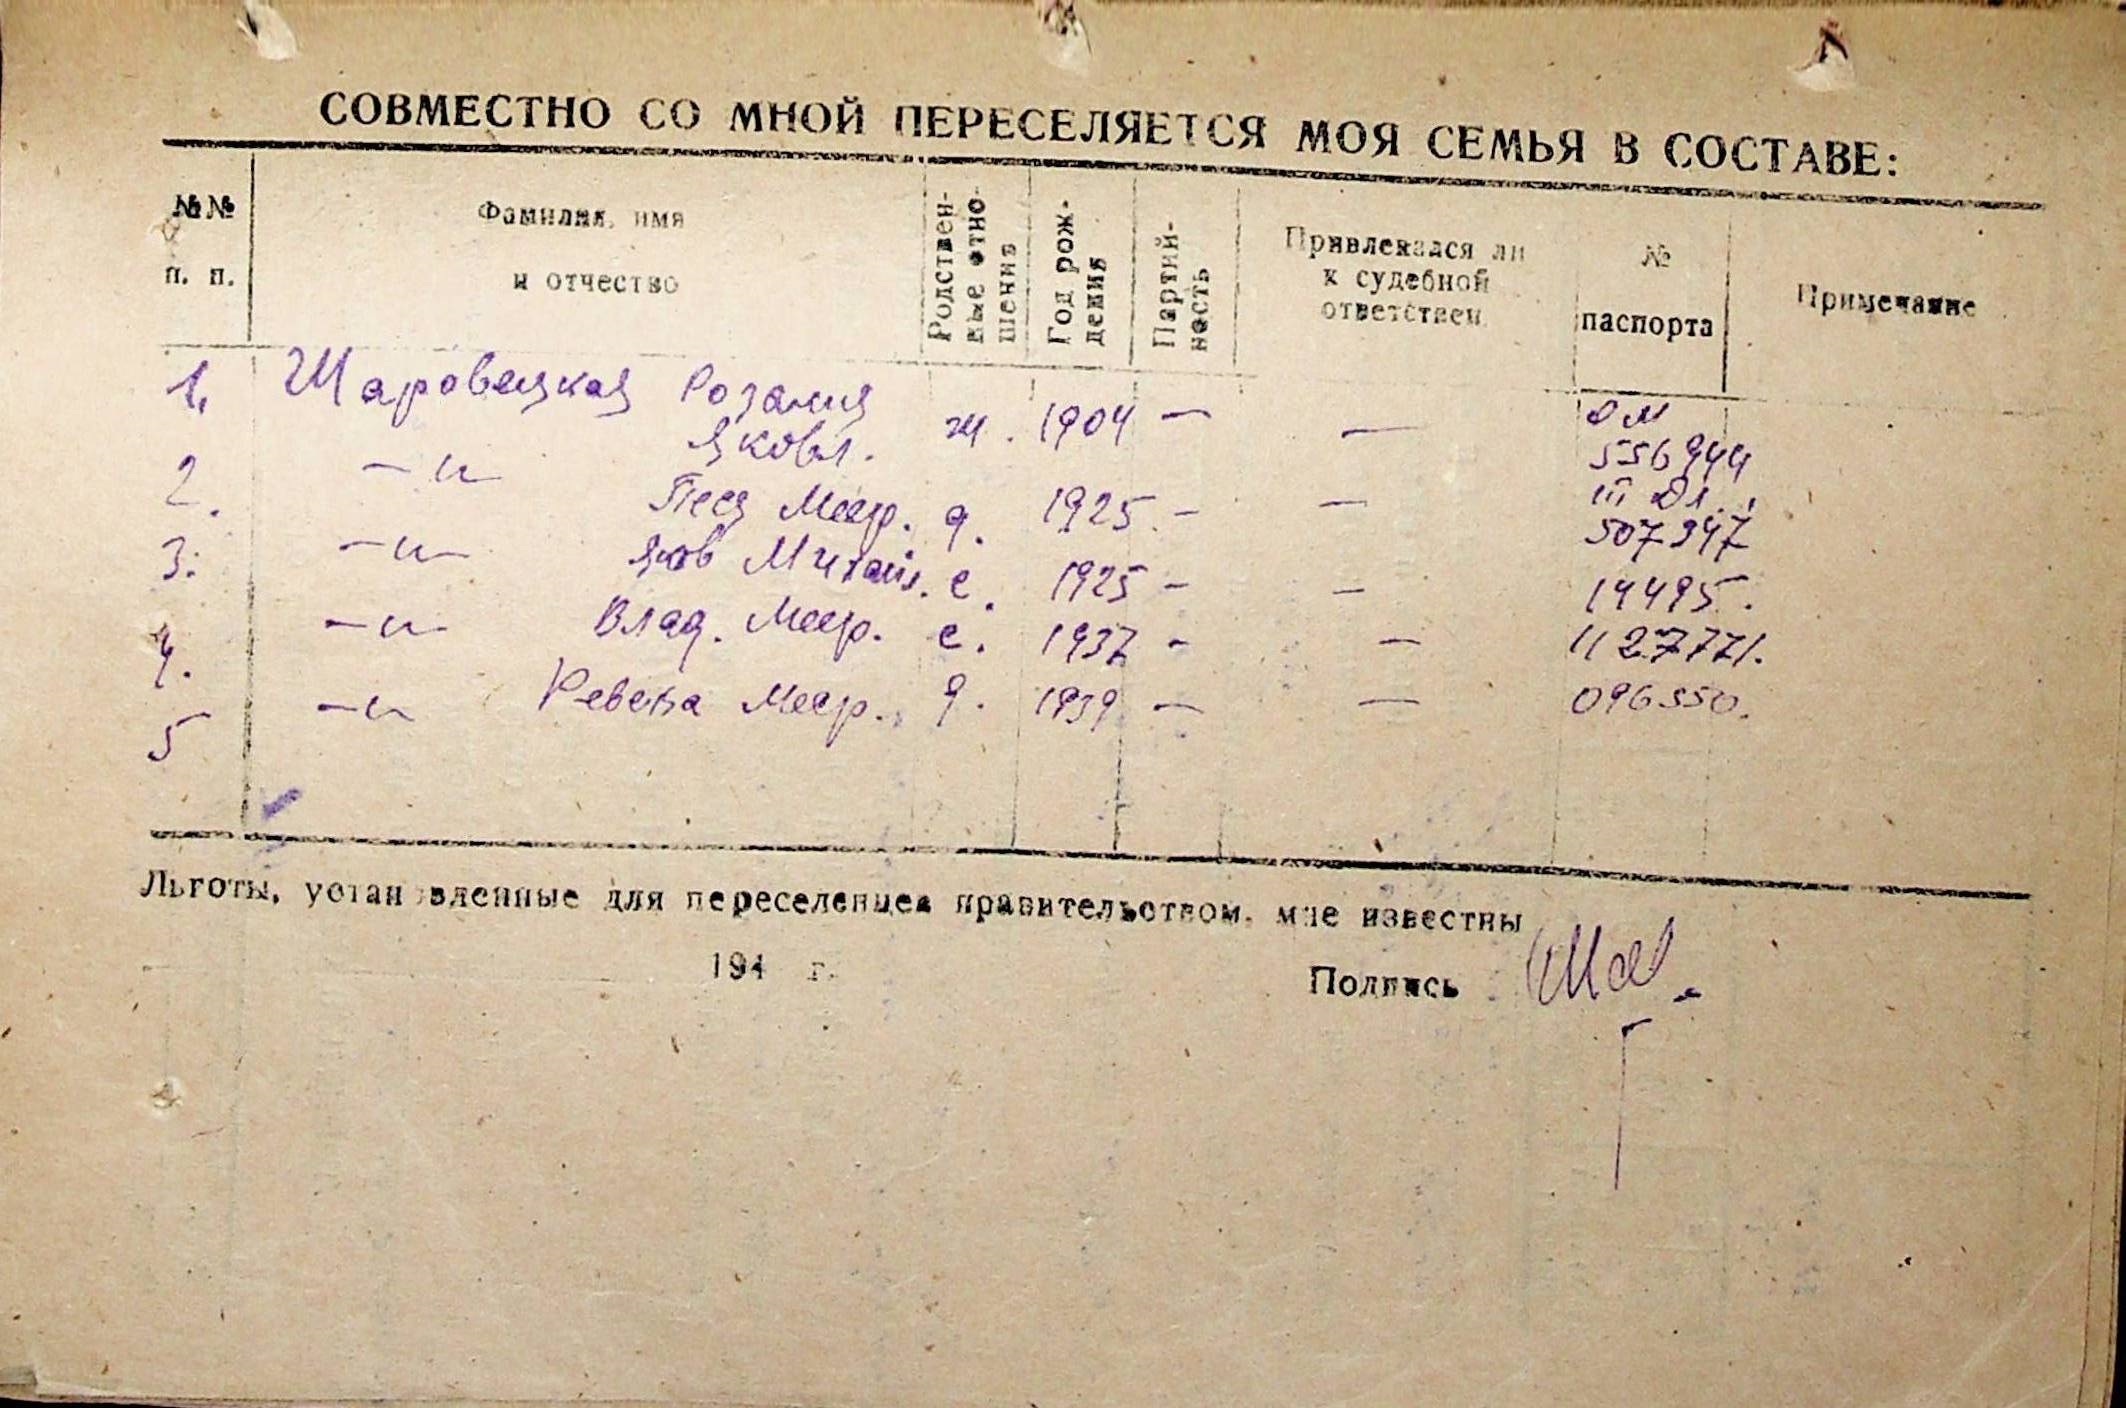 СОВМЕСТНО СО МНОЙ ПЕРЕСЕЛЯЕТСЯ МОЯ СЕМЬЯ В СОСТАВЕ:
№№ п. п.
Фамилия, имя и отчество
Родствен-ные отно-шения
Год рож-дения
Партий-ность
Привлекался ли к судебной ответствен.
№ паспорта
Примечание
1. Шаровецкая Розалия Яковл. ж. 1904 — — 556944
2. —„— Песя Меер. д. 1925. — — III 507947
3. —„— Яков Михайл. с. 1925 — — 14495.
4. —„— Влад. Меер. с. 1937 — — 1127771.
5 —„— Ревека Меер. д. 1939 — — 096550.
Льготы, установленные для переселенцев правительством, мне известны
194 г. Подпись